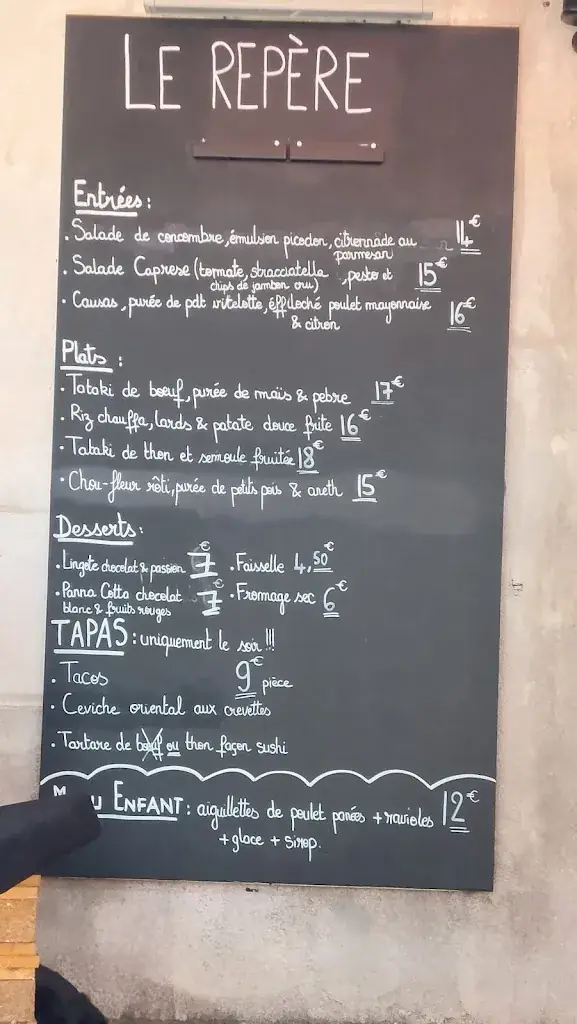 LE REPÈRE
Entrées:
. Salade de concombre, émulsion picodon, citronnade au parmesan 14€
. Salade Caprese (tomate, stracciatella, pesto et chips de jambon cru) 15€
. Causas, purée de pdt vitelotte, effiloché poulet mayonnaise & citron 16€
Plats :
. Tataki de boeuf, purée de maïs & pebre 17€
. Riz chauffa, lards & patate douce frite 16€
. Tataki de thon et semoule fruitée 18€
. Chou-fleur rôti, purée de petits pois & aneth 15€
Desserts:
. Lingote chocolat & passion 7€ . Faisselle 4,50€
. Panna Cotta chocolat blanc & fruits rouges 7€ . Fromage sec 6€
TAPAS : uniquement le soir !!!
. Tacos 9€ pièce
. Ceviche oriental aux crevettes
. Tartare de boeuf ou thon façon sushi
ENFANT : aiguillettes de poulet panées + ravioles 12€
+ glace + sirop.